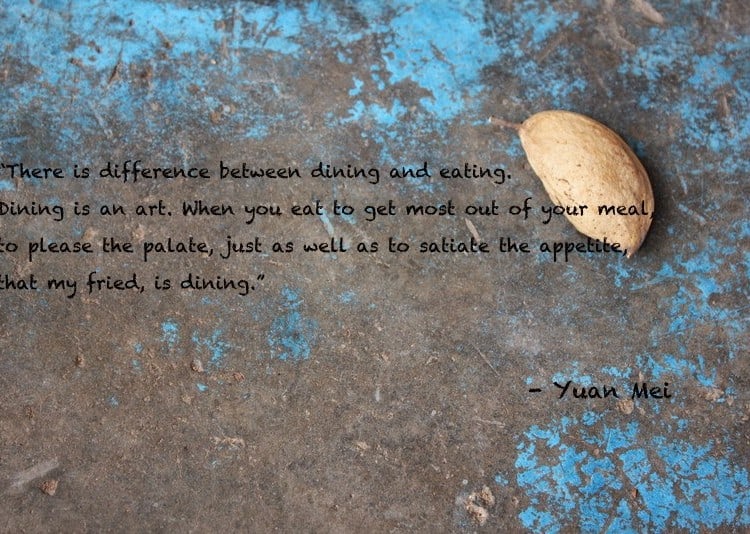 “There is difference between dining and eating.
Dining is an art. When you eat to get most out of your meal,
to please the palate, just as well as to satiate the appetite,
that my fried, is dining.”
- Yuan Mei